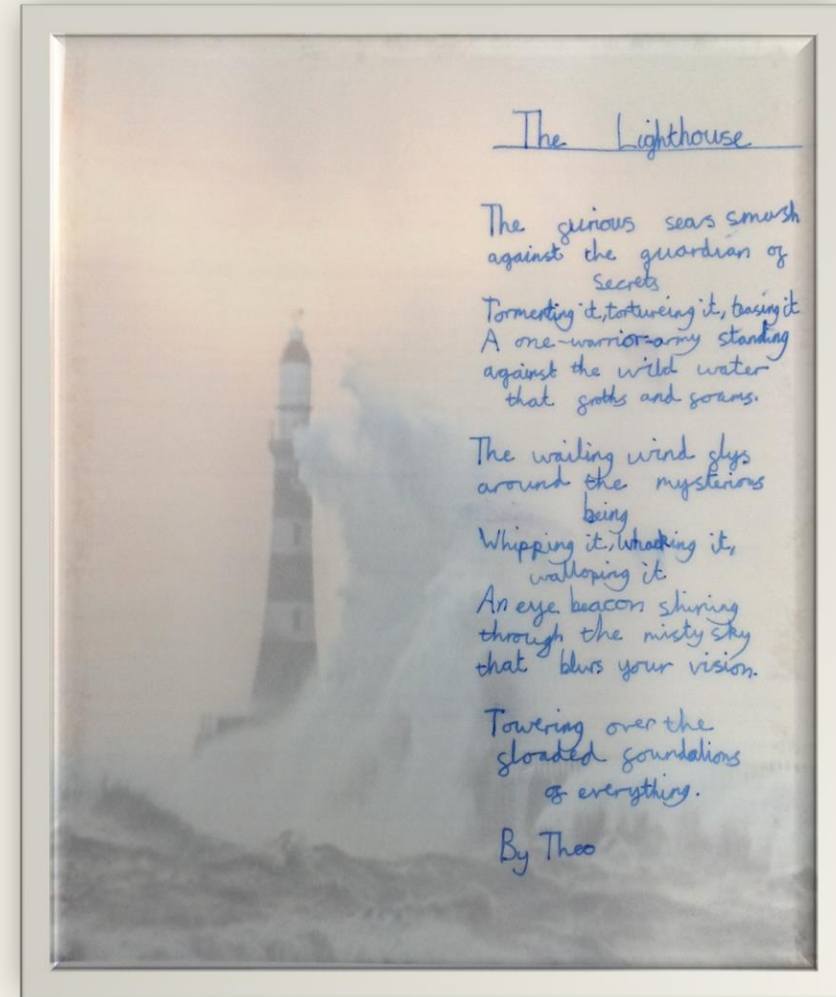 The Lighthouse
The furious seas smash
against the guardian of
secrets
Tormenting it, tortureing it, teasing it
A one-warrior-army standing
against the wild water
that froths and foams.
The wailing wind flys
around the mysterious
being
Whipping it, whacking it,
walloping it
An eye beacon shining
through the misty sky
that blurs your vision.
Towering over the
floaded foundations
of everything.
By Theo